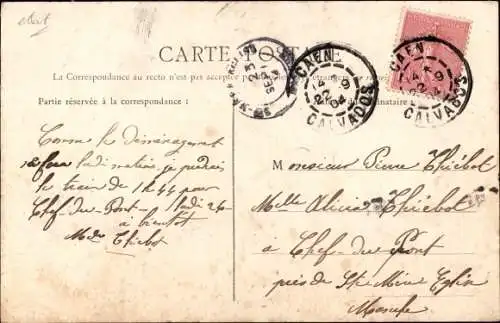 CARTE POSTALE
La Correspondance au recto n'est pas acceptée
Partie réservée à la correspondance :
CAEN
CALVADOS
CAEN
CALVADOS
Comme le déménagement
lundi matin, je prendrai
le train de 1h44 pour
Chef-du-Pont - lundi 24
à bientôt
Thiébot
Monsieur Pierre Thiébot
Melle Thiébot
à Chef-du Pont
près de Ste Mère Eglise
Manche